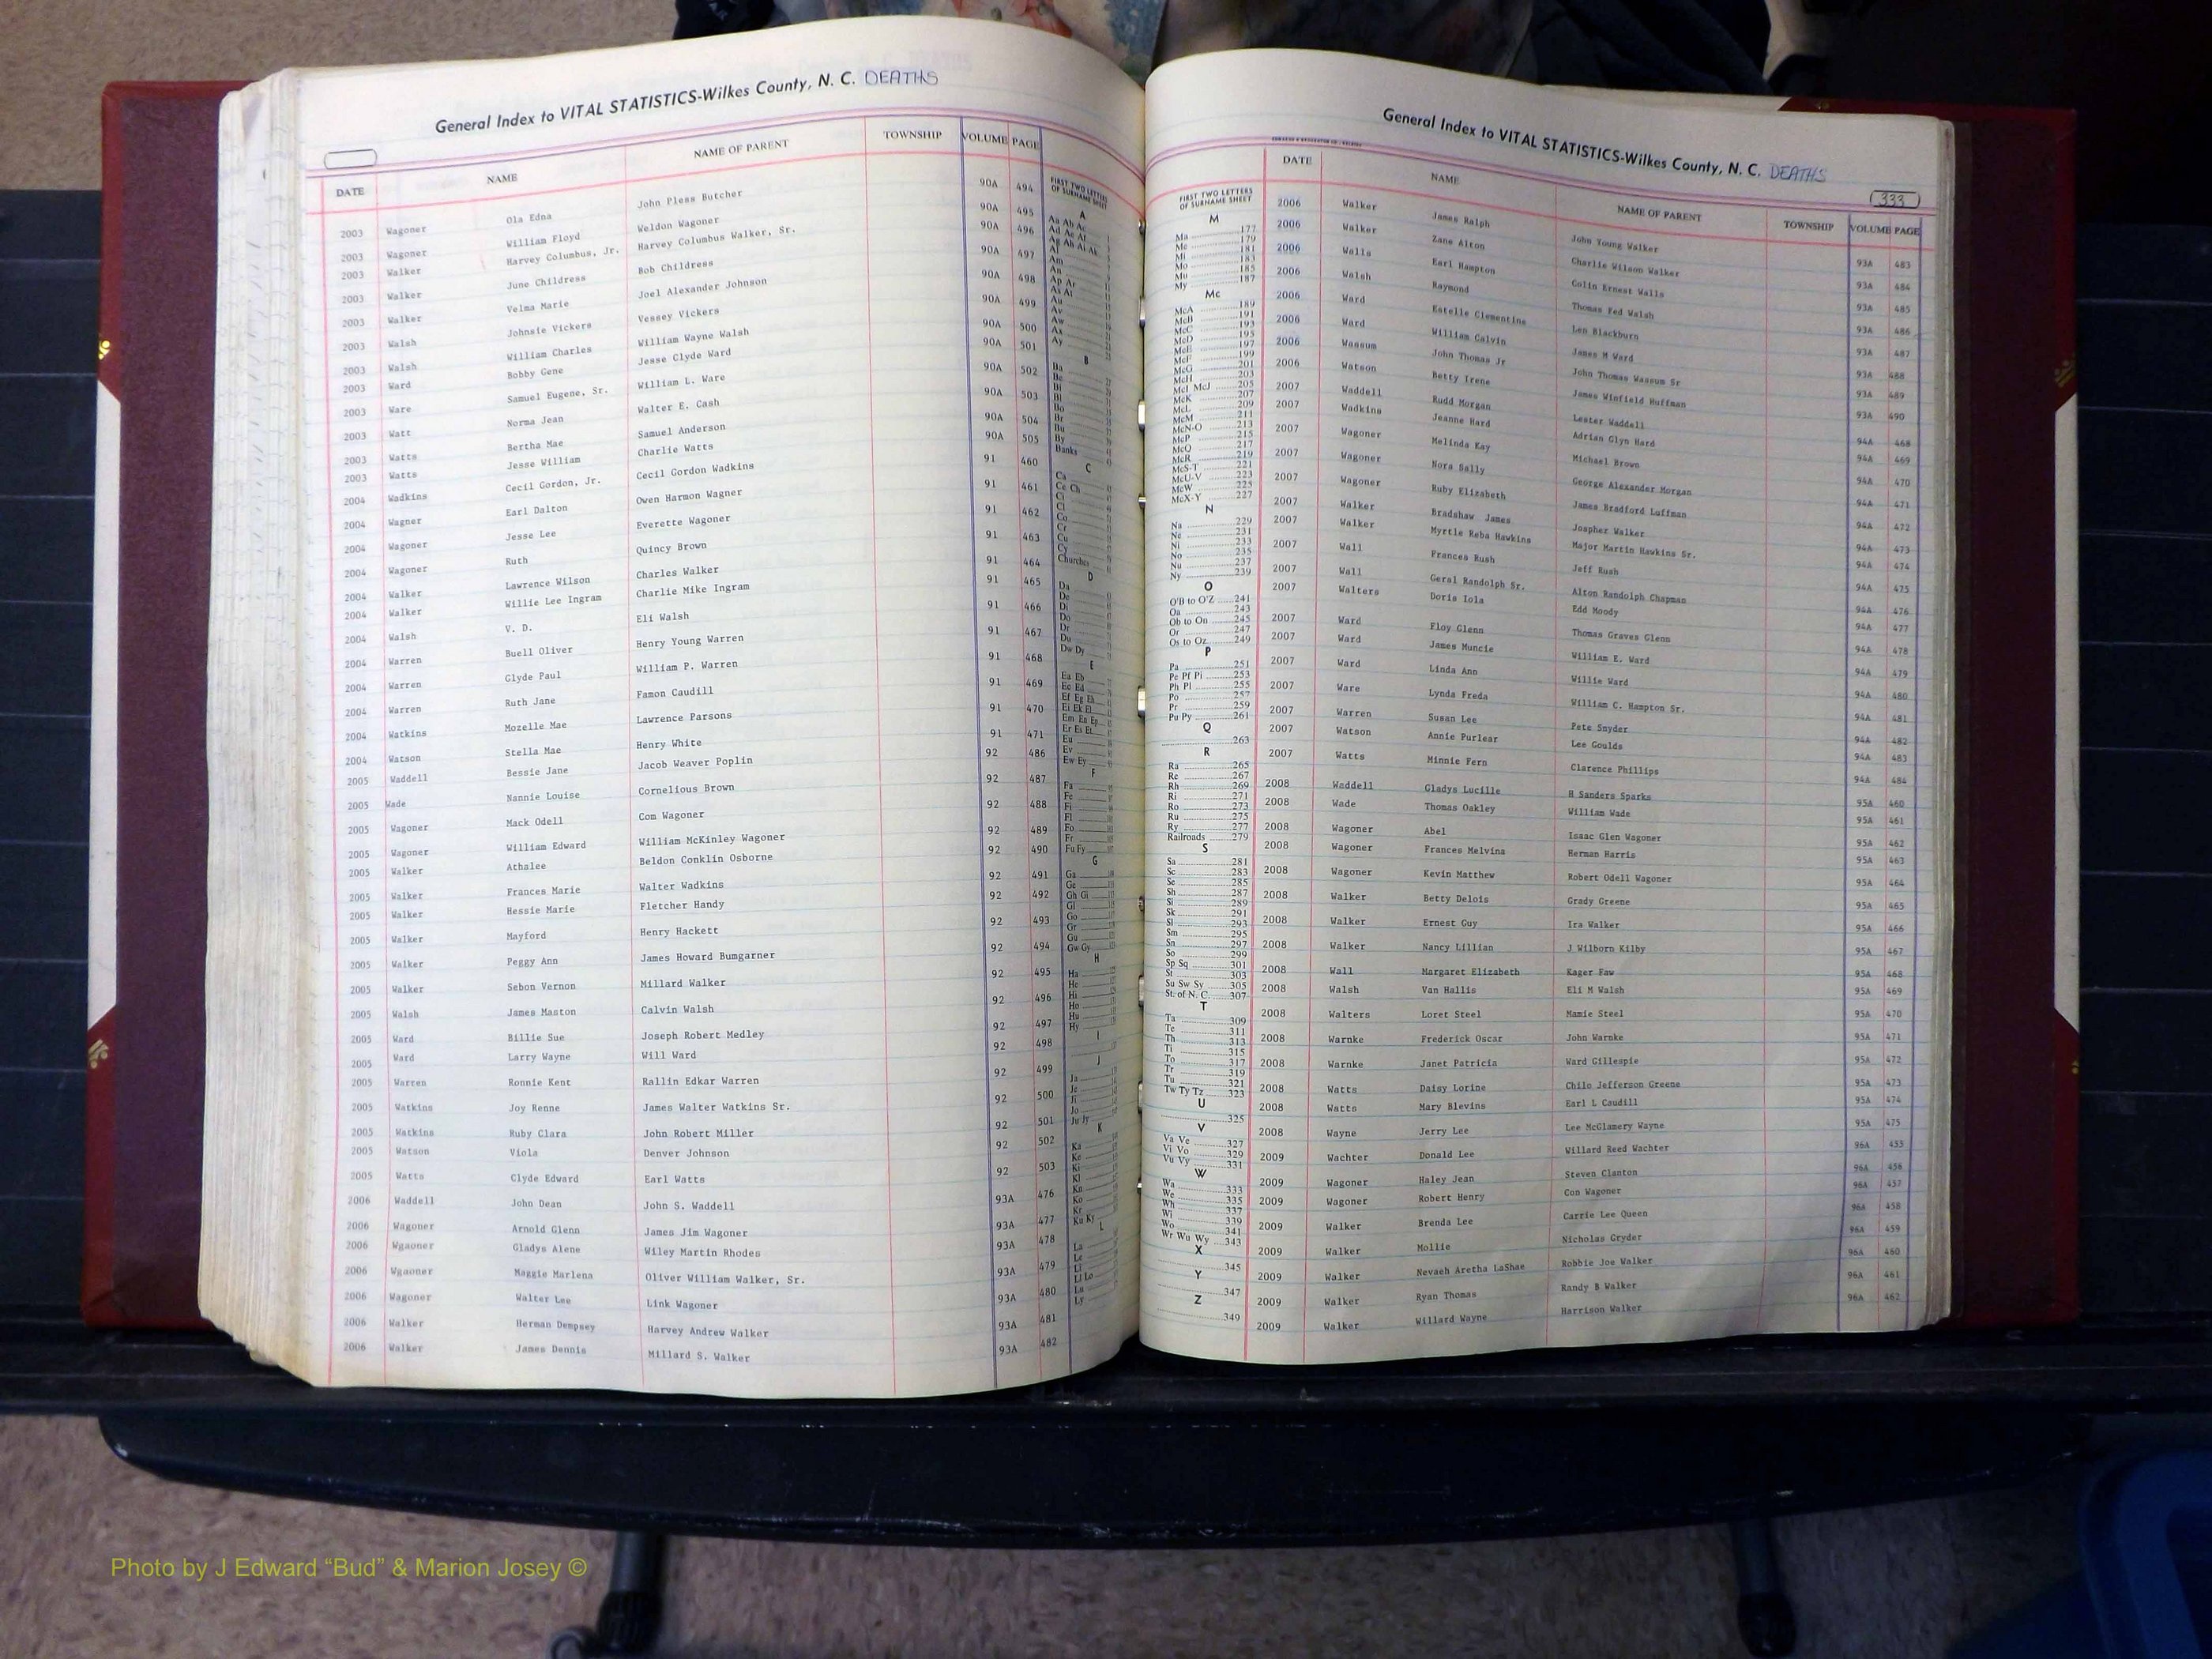 General Index to VITAL STATISTICS-Wilkes County, N. C. DEATHS
DATE NAME NAME OF PARENT TOWNSHIP VOLUME PAGE
2003 Wagoner Ola Edna John Pless Butcher 90A 494
2003 Wagoner William Floyd Weldon Wagoner 90A 495
2003 Walker Harvey Columbus, Jr. Harvey Columbus Walker, Sr. 90A 496
2003 Walker June Childress Bob Childress 90A 497
2003 Walker Velma Marie Joel Alexander Johnson 90A 498
2003 Walsh Johnsie Vickers Vessey Vickers 90A 499
2003 Walsh William Charles William Wayne Walsh 90A 500
2003 Ward Bobby Gene Jesse Clyde Ward 90A 501
2003 Ware Samuel Eugene, Sr. William L. Ware 90A 502
2003 Watt Norma Jean Walter E. Cash 90A 503
2003 Watts Bertha Mae Samuel Anderson 90A 504
2003 Watts Jesse William Charlie Watts 90A 505
2004 Wadkins Cecil Gordon, Jr. Cecil Gordon Wadkins 91 460
2004 Wagner Earl Dalton Owen Harmon Wagner 91 461
2004 Wagoner Jesse Lee Everette Wagoner 91 462
2004 Wagoner Ruth Quincy Brown 91 463
2004 Walker Lawrence Wilson Charles Walker 91 464
2004 Walker Willie Lee Ingram Charlie Mike Ingram 91 465
2004 Walsh V. D. Eli Walsh 91 466
2004 Warren Buell Oliver Henry Young Warren 91 467
2004 Warren Glyde Paul William P. Warren 91 468
2004 Warren Ruth Jane Famon Caudill 91 469
2004 Watkins Mozelle Mae Lawrence Parsons 91 470
2004 Watson Stella Mae Henry White 91 471
2005 Waddell Bessie Jane Jacob Weaver Poplin 92 486
2005 Wade Nannie Louise Cornelious Brown 92 487
2005 Wagoner Mack Odell Com Wagoner 92 488
2005 Wagoner William Edward William McKinley Wagoner 92 489
2005 Walker Athalee Beldon Conklin Osborne 92 490
2005 Walker Frances Marie Walter Wadkins 92 491
2005 Walker Hessie Marie Fletcher Handy 92 492
2005 Walker Mayford Henry Hackett 92 493
2005 Walker Peggy Ann James Howard Bumgarner 92 494
2005 Walker Sebon Vernon Millard Walker 92 495
2005 Walsh James Maston Calvin Walsh 92 496
2005 Ward Billie Sue Joseph Robert Medley 92 497
2005 Ward Larry Wayne Will Ward 92 498
2005 Warren Ronnie Kent Rallin Edkar Warren 92 499
2005 Watkins Joy Renne James Walter Watkins Sr. 92 500
2005 Watkins Ruby Clara John Robert Miller 92 501
2005 Watson Viola Denver Johnson 92 502
2005 Watts Clyde Edward Earl Watts 92 503
2006 Waddell John Dean John S. Waddell 93A 476
2006 Wagoner Arnold Glenn James Jim Wagoner 93A 477
2006 Wgaoner Gladys Alene Wiley Martin Rhodes 93A 478
2006 Wgaoner Maggie Marlena Oliver William Walker, Sr. 93A 479
2006 Wagoner Walter Lee Link Wagoner 93A 480
2006 Walker Herman Dempsey Harvey Andrew Walker 93A 481
2006 Walker James Dennis Millard S. Walker 93A 482
FIRST TWO LETTERS
OF SURNAME SHEET
A
Aa Ab Ac
Ad Ae Af
Ag Ah Ai Ak
Al
Am
An
Ap Ar
As At
Au
Av
Aw
Ax
Ay
B
Ba
Be
Bi
Bl
Bo
Br
Bu
By
Banks
C
Ca
Ce Ch
Ci
Cl
Co
Cr
Cu
Cy
Churches
D
Da
De
Di
Do
Dr
Du
Dw Dy
E
Ea Eb
Ec Ed
Ef Eg Eh
Ei Ek El
Em En Ep
Er Es Et
Eu
Ev
Ew Ey
F
Fa
Fe
Fi
Fl
Fo
Fr
Fu Fy
G
Ga
Ge
Gh Gi
Gl
Go
Gr
Gu
Gw Gy
H
Ha
He
Hi
Ho
Hu
Hy
I
J
Ja
Je
Ji
Jo
Ju Jy
K
Ka
Ke
Ki
Kl
Kn
Ko
Kr
Ku Ky
L
La
Le
Li
Ll Lo
Lu
Ly
General Index to VITAL STATISTICS-Wilkes County, N. C. DEATHS
333
FIRST TWO LETTERS
OF SURNAME SHEET
M
Ma 177
Me 179
Mi 181
Mo 183
Mu 185
My 187
Mc
McA 189
McB 191
McC 193
McD 195
McE 197
McF 199
McG 201
McH 203
McI McJ 205
McK 207
McL 209
McM 211
McN-O 213
McP 215
McQ 217
McR 219
McS-T 221
McU-V 223
McW 225
McX-Y 227
N
Na 229
Ne 231
Ni 233
No 235
Nu 237
Ny 239
O
O'B to O'Z 241
Oa 243
Ob to On 245
Or 247
Os to Oz 249
P
Pa 251
Pe Pf Pi 253
Ph Pl 255
Po 257
Pr 259
Pu Py 261
Q
263
R
Ra 265
Re 267
Rh 269
Ri 271
Ro 273
Ru 275
Ry 277
Railroads 279
S
Sa 281
Sc 283
Se 285
Sh 287
Si 289
Sk 291
Sl 293
Sm 295
Sn 297
So 299
Sp Sq 301
St 303
Su Sw Sy 305
St. of N. C. 307
T
Ta 309
Te 311
Th 313
Ti 315
To 317
Tr 319
Tu 321
Tw Ty Tz 323
U
325
V
Va Ve 327
Vi Vo 329
Vu Vy 331
W
Wa 333
We 335
Wh 337
Wi 339
Wo 341
Wr Wu Wy 343
X
345
Y
347
Z
349
DATE NAME NAME OF PARENT TOWNSHIP VOLUME PAGE
2006 Walker James Ralph John Young Walker 93A 483
2006 Walker Zane Alton Charlie Wilson Walker 93A 484
2006 Walls Earl Hampton Colin Ernest Walls 93A 485
2006 Walsh Raymond Thomas Fed Walsh 93A 486
2006 Ward Estelle Clementine Len Blackburn 93A 487
2006 Ward William Calvin James M Ward 93A 488
2006 Wassum John Thomas Jr John Thomas Wassum Sr 93A 489
2006 Watson Betty Irene James Winfield Huffman 93A 490
2007 Waddell Rudd Morgan Lester Waddell 94A 468
2007 Wadkins Jeanne Hard Adrian Glyn Hard 94A 469
2007 Wagoner Melinda Kay Michael Brown 94A 470
2007 Wagoner Nora Sally George Alexander Morgan 94A 471
2007 Wagoner Ruby Elizabeth James Bradford Luffman 94A 472
2007 Walker Bradshaw James Jospher Walker 94A 473
2007 Walker Myrtle Reba Hawkins Major Martin Hawkins Sr. 94A 474
2007 Wall Frances Rush Jeff Rush 94A 475
2007 Wall Geral Randolph Sr. Alton Randolph Chapman 94A 476
2007 Walters Doris Iola Edd Moody 94A 477
2007 Ward Floy Glenn Thomas Graves Glenn 94A 478
2007 Ward James Muncie William E. Ward 94A 479
2007 Ward Linda Ann Willie Ward 94A 480
2007 Ware Lynda Freda William C. Hampton Sr. 94A 481
2007 Warren Susan Lee Pete Snyder 94A 482
2007 Watson Annie Purlear Lee Goulds 94A 483
2007 Watts Minnie Fern Clarence Phillips 94A 484
2008 Waddell Gladys Lucille H Sanders Sparks 95A 460
2008 Wade Thomas Oakley William Wade 95A 461
2008 Wagoner Abel Isaac Glen Wagoner 95A 462
2008 Wagoner Frances Melvina Herman Harris 95A 463
2008 Wagoner Kevin Matthew Robert Odell Wagoner 95A 464
2008 Walker Betty Delois Grady Greene 95A 465
2008 Walker Ernest Guy Ira Walker 95A 466
2008 Walker Nancy Lillian J Wilborn Kilby 95A 467
2008 Wall Margaret Elizabeth Kager Faw 95A 468
2008 Walsh Van Hallis Eli M Walsh 95A 469
2008 Walters Loret Steel Mamie Steel 95A 470
2008 Warnke Frederick Oscar John Warnke 95A 471
2008 Warnke Janet Patricia Ward Gillespie 95A 472
2008 Watts Daisy Lorine Chilo Jefferson Greene 95A 473
2008 Watts Mary Blevins Earl L Caudill 95A 474
2008 Wayne Jerry Lee Lee McGlamery Wayne 95A 475
2009 Wachter Donald Lee Willard Reed Wachter 96A 455
2009 Wagoner Haley Jean Steven Clanton 96A 456
2009 Wagoner Robert Henry Con Wagoner 96A 457
2009 Walker Brenda Lee Carrie Lee Queen 96A 458
2009 Walker Mollie Nicholas Gryder 96A 459
2009 Walker Nevaeh Aretha LaShae Robbie Joe Walker 96A 460
2009 Walker Ryan Thomas Randy B Walker 96A 461
2009 Walker Willard Wayne Harrison Walker 96A 462
Photo by J Edward “Bud” & Marion Josey ©